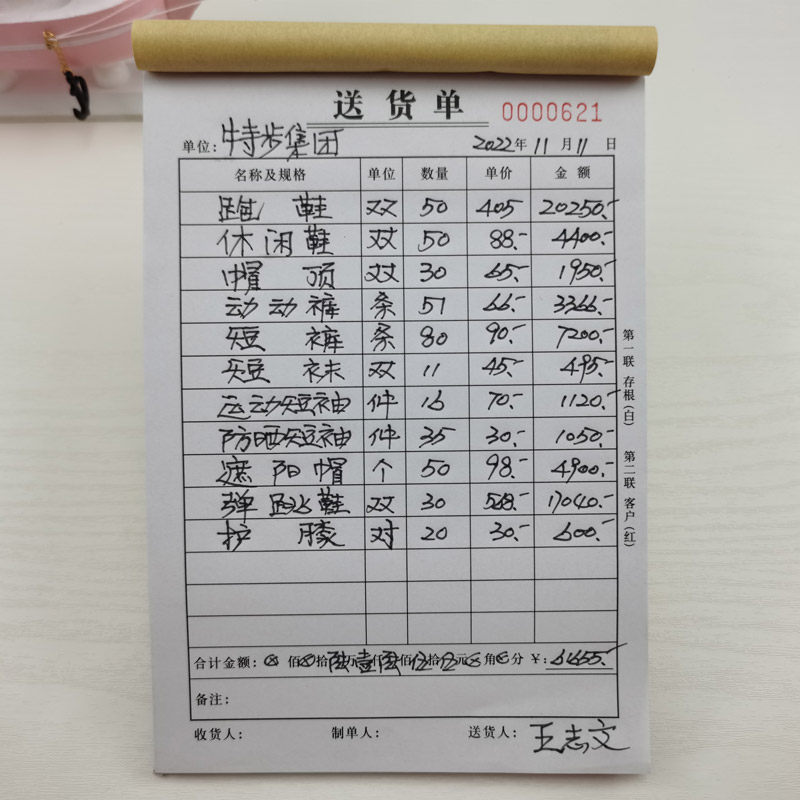 送货单 0000621
单位：特步集团 2022年11月11日
名称及规格 单位 数量 单价 金额
跑鞋 双 50 405 20250.-
休闲鞋 双 50 88.- 4400.-
帽顶 双 30 65.- 1950.-
动动裤 条 51 66.- 3366.-
短裤 条 80 90.- 7200.-
短袜 双 11 45.- 495.-
运动短袖 件 16 70.- 1120.-
防晒短袖 件 35 30.- 1050.-
遮阳帽 个 50 98.- 4900.-
弹跳鞋 双 30 568.- 17040.-
护膝 对 20 30.- 600.-
合计金额：⊗佰⊗拾陆万壹仟陆佰伍拾伍元⊗角⊗分 ¥：61655.-
备注：
收货人： 制单人： 送货人：王志文
第一联 存根（白） 第二联 客户（红）